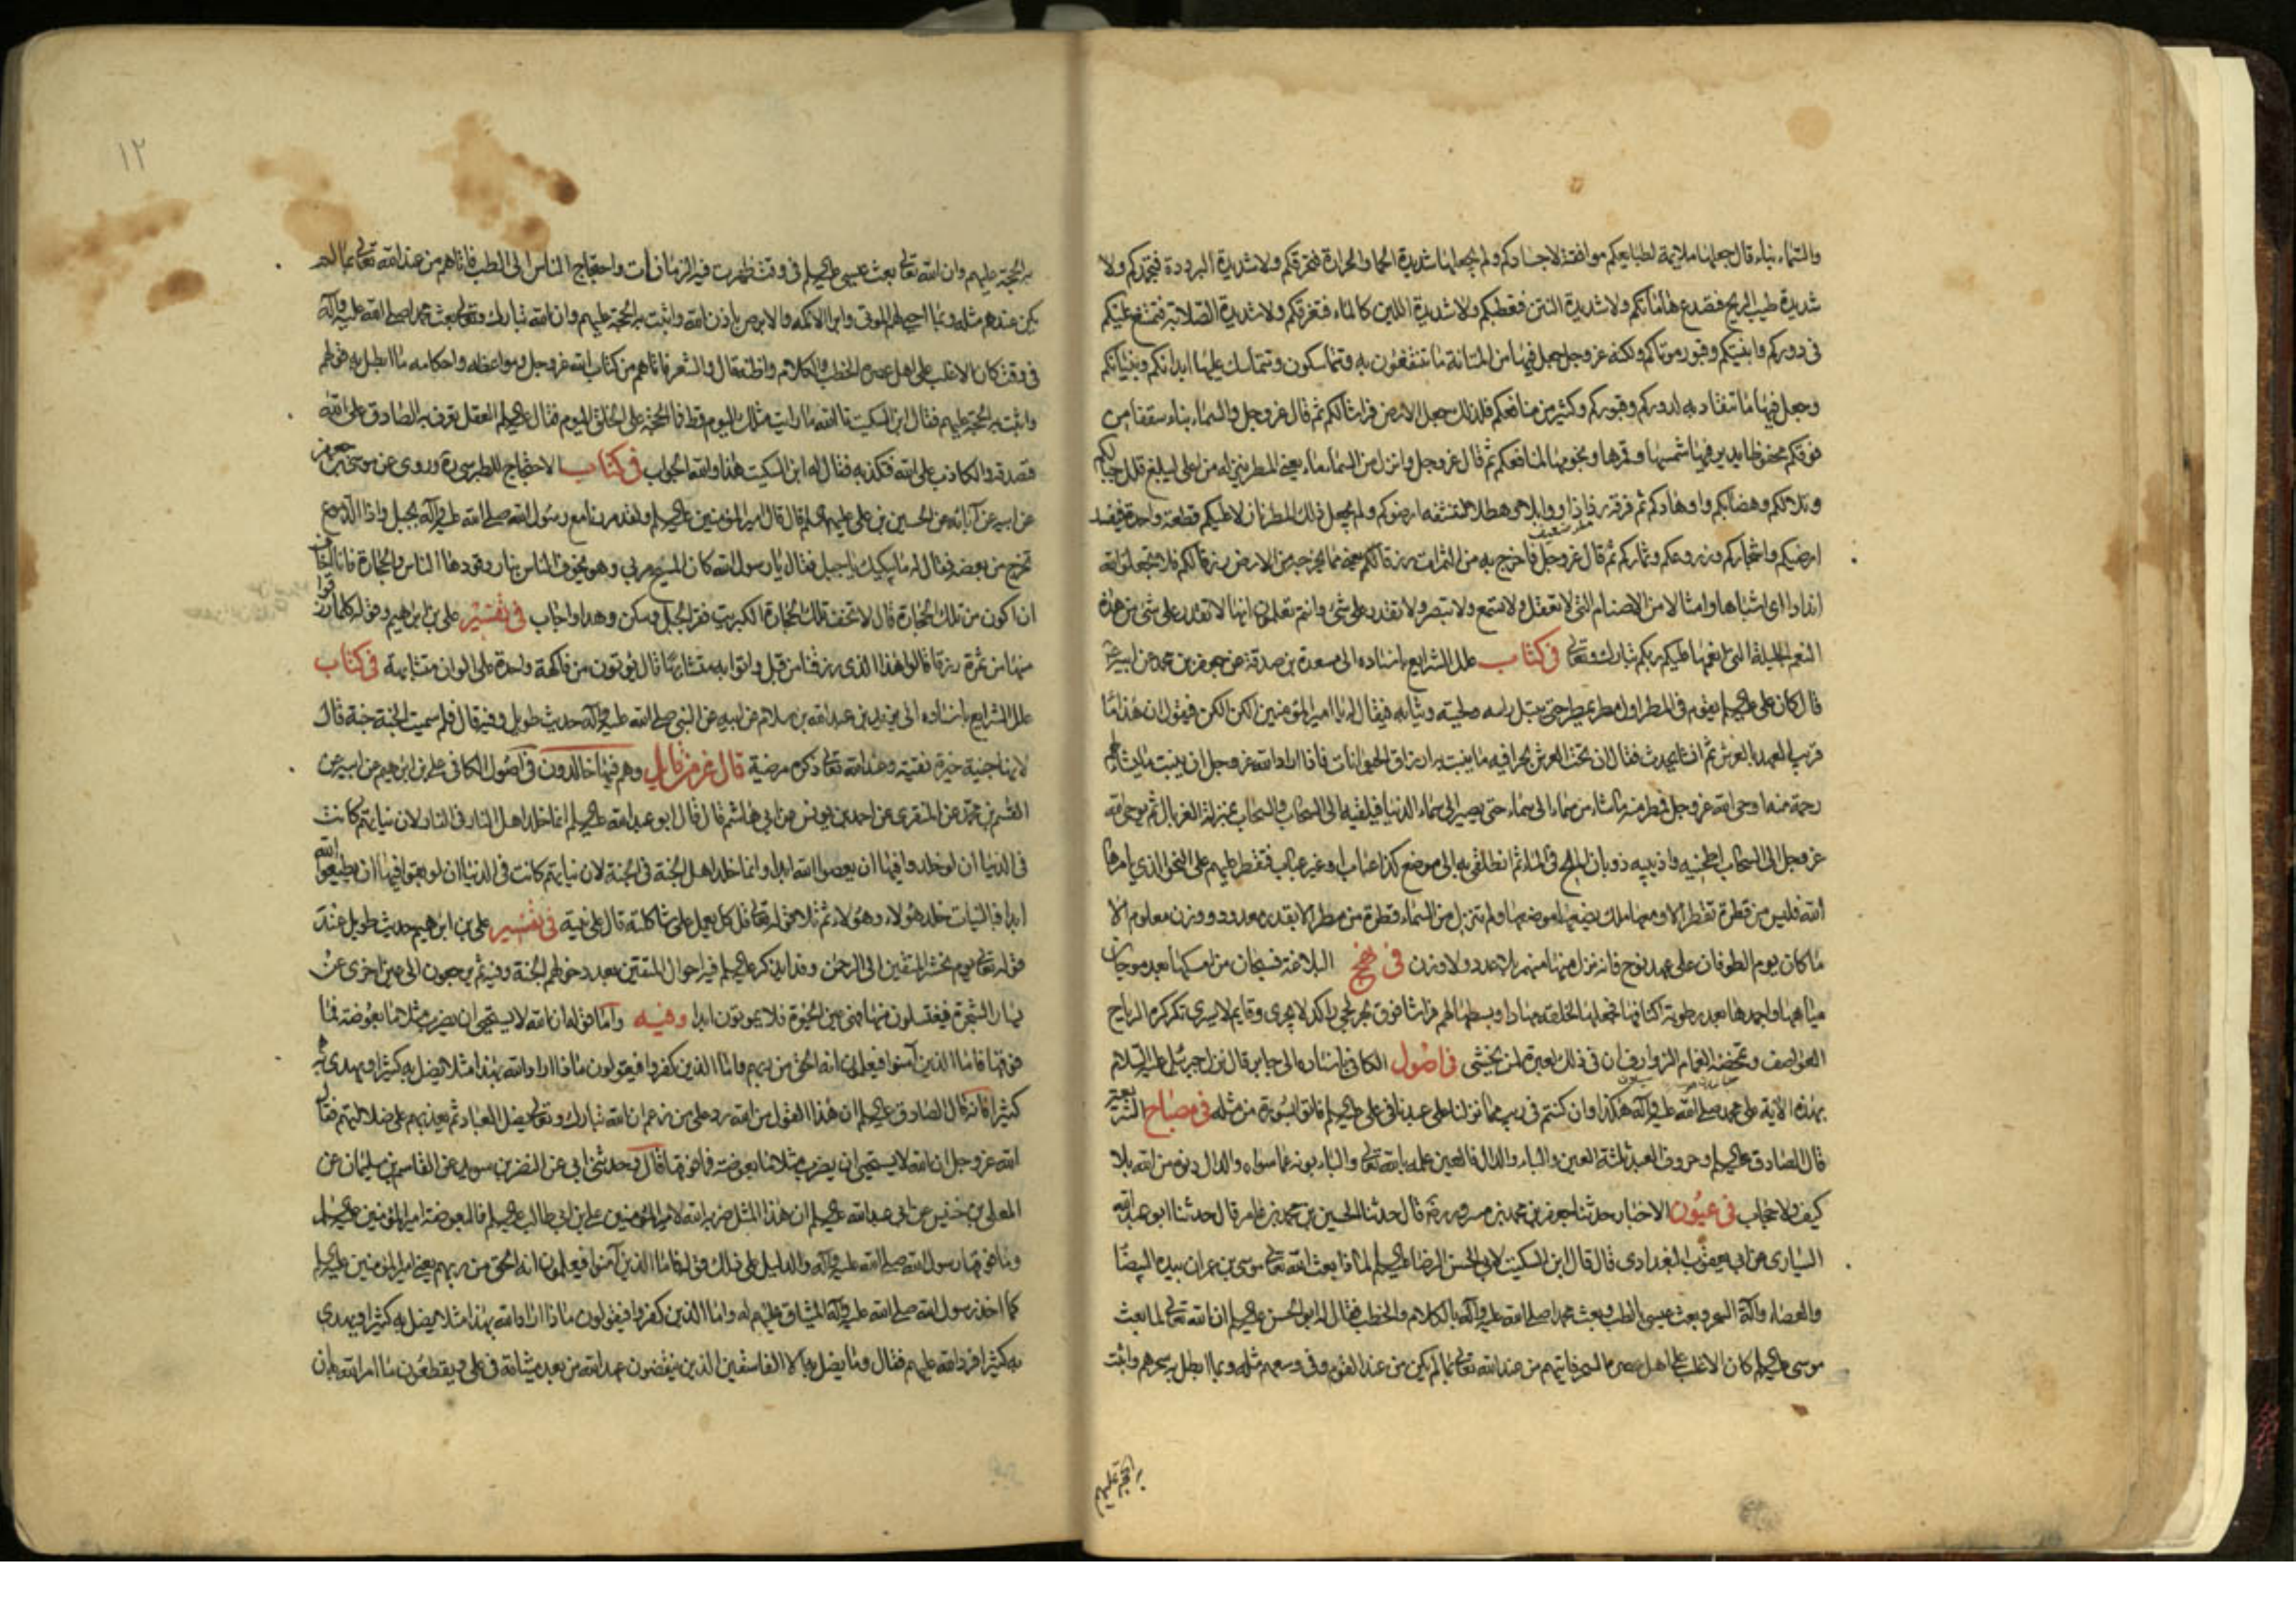 والسماء بناء قال جعلها ملائمة لطبايعكم موافقة لاجسادكم ولم يجعلها شديدة الحما والحرارة فتحرقكم ولا شديدة البرودة فتجمدكم ولا
شديدة طيب الريح فتصدع هاماتكم ولا شديدة النتن فتعطبكم ولا شديدة اللين كالماء فتغرقكم ولا شديدة الصلابة فتمتنع عليكم
في دوركم وابنيتكم وقبور موتاكم ولكنه عز وجل جعل فيها من المتانة ما تنتفعون به وتتماسكون وتتماسك عليها ابدانكم وبنيانكم
وجعل فيها ما تنقاد به لدوركم وقبوركم وكثير من منافعكم فلذلك جعل الارض فراشا لكم ثم قال عز وجل والسماء بناء سقفا من
فوقكم محفوظا يدير فيها شمسها وقمرها ونجومها لمنافعكم ثم قال عز وجل وانزل من السماء ماء يعني المطر ينزله من اعلى ليبلغ قلل جبالكم
وتلالكم وهضابكم واوهادكم ثم فرقه رذاذا ووابلا وهطلا لتنشفه ارضوكم ولم يجعل ذلك المطر نازلا عليكم قطعة واحدة فيفسد
ارضيكم واشجاركم وزروعكم وثماركم ثم قال عز وجل فاخرج به من الثمرات رزقا لكم يعني مما يخرجه من الارض رزقا لكم فلا تجعلوا لله
اندادا اى اشباها وامثالا من الاصنام التي لا تعقل ولا تسمع ولا تبصر ولا تقدر على شئ وانتم تعلمون انها لا تقدر على شئ من هذه
النعم الجليلة التي انعمها عليكم ربكم تبارك وتعالى في كتاب علل الشرايع باسناده الى مسعدة بن صدقة عن جعفر بن محمد عن ابيه
قال كان على عليه السلام يقوم في المطر اول مطر يمطر حتى يبتل راسه ولحيته وثيابه فيقال له يا امير المؤمنين الكن الكن فيقول ان هذا ما
قريب العهد بالعرش ثم انشا يحدث فقال ان تحت العرش بحرا فيه ما ينبت به ارزاق الحيوانات فاذا اراد الله عز وجل ان ينبت ما يشاء لهم
رحمة منه اوحى الله عز وجل فمطر منه ما شاء من سماء الى سماء حتى يصير الى سماء الدنيا فيلقيه الى السحاب والسحاب بمنزلة الغربال ثم يوحى الله
عز وجل الى السحاب اطحنيه واذيبيه ذوبان الملح في الماء ثم انطلقي به الى موضع كذا عباب او غير عباب فتقطر عليهم على النحو الذي يامرها
الله فليس من قطرة تقطر الا ومعها ملك يضعها موضعها ولم تنزل من السماء قطرة من مطر الا بقدر معدود ووزن معلوم الا
ما كان يوم الطوفان على عهد نوح فانه نزل منها منهمر بلا عدد ولا وزن في نهج البلاغة فسبحان من امسكها بعد موجان
مياهها واجمدها بعد رطوبة اكنافها فجعلها لخلقه مهادا وبسطها لهم فراشا فوق بحر لجي راكد لا يجرى وقايم لا يسري تكركره الرياح
العواصف وتمخضه الغمام الذوارف ان في ذلك لعبرة لمن يخشى في اصول الكافي باسناده الى جابر قال نزل جبرئيل عليه السلام
بهذه الاية على محمد صلى الله عليه وآله هكذا وان كنتم في ريب مما نزلنا على عبدنا في على عليه السلام فاتوا بسورة من مثله في مصباح الشريعة
قال الصادق عليه السلام وحروف العبد ثلثة العين والباء والدال فالعين علمه بالله تعالى والباء بونه عما سواه والدال دنوه من الله بلا
كيف ولا حجاب في عيون الاخبار حدثنا جعفر بن محمد بن مسرور ره قال حدثنا الحسين بن محمد بن عامر قال حدثنا ابو عبد الله
السياري عن ابي يعقوب البغدادى قال قال ابن السكيت لابي الحسن الرضا عليه السلام لماذا بعث الله تعالى موسى بن عمران بيده البيضا
والعصا وآلة السحر وبعث عيسى بالطب وبعث محمدا صلى الله عليه وآله بالكلام والخطب فقال له ابو الحسن عليه السلام ان الله تعالى لما بعث
موسى عليه السلام كان الاغلب على اهل عصره السحر فاتيهم من عند الله تعالى بما لم يكن من عند القوم وفي وسعهم مثله وبما ابطل به سحرهم واثبت
به الحجة عليهم
١٢
به الحجة عليهم وان الله تعالى بعث عيسى عليه السلام في وقت ظهرت فيه الزمانات واحتاج الناس الى الطب فاتاهم من عند الله تعالى بما لم
يكن عندهم مثله وبما احيى لهم الموتى وابرا الاكمه والابرص باذن الله واثبت به الحجة عليهم وان الله تبارك وتعالى بعث محمدا صلى الله عليه وآله
في وقت كان الاغلب على اهل عصره الخطب والكلام واظنه قال والشعر فاتاهم من كتاب الله عز وجل ومواعظه واحكامه ما ابطل به قولهم
واثبت به الحجة عليهم فقال ابن السكيت تالله ما رايت مثلك اليوم قط فما الحجة على الخلق اليوم فقال عليه السلام العقل تعرف به الصادق على الله
فتصدقه والكاذب على الله فتكذبه فقال له ابن السكيت هذا والله الجواب في كتاب الاحتجاج للطبرسي ره وروى عن موسى بن جعفر
عن ابيه عن آبائه عن الحسين بن على عليهم السلام قال قال امير المؤمنين عليه السلام ولقد مررنا مع رسول الله صلى الله عليه وآله بجبل واذا الدموع
تخرج من بعضه فقال له ما يبكيك يا جبل فقال يا رسول الله كان المسيح مر بي وهو يخوف الناس بنار وقودها الناس والحجارة فانا اخاف
ان اكون من تلك الحجارة قال لا تخف تلك الحجارة الكبريت فقر الجبل وسكن وهدا واجاب في تفسير على بن ابراهيم وقوله كلما رزقوا
منها من ثمرة رزقا قالوا هذا الذى رزقنا من قبل واتوا به متشابها قال يؤتون من فاكهة واحدة على الوان متشابهة في كتاب
علل الشرايع باسناده الى يزيد بن عبد الله بن سلام عن ابيه عن النبي صلى الله عليه وآله حديث طويل وفيه قال فلم سميت الجنة جنة قال
لانها جنينة خيرة نقية وعند الله تعالى ذكره مرضية قال عز من قايل وهم فيها خالدون في اصول الكافي على بن ابراهيم عن ابيه عن
القسم بن محمد عن المنقرى عن احمد بن يونس عن ابي هاشم قال قال ابو عبد الله عليه السلام انما خلد اهل النار في النار لان نياتهم كانت
في الدنيا ان لو خلدوا فيها ان يعصوا الله ابدا وانما خلد اهل الجنة في الجنة لان نياتهم كانت في الدنيا ان لو بقوا فيها ان يطيعوا الله
ابدا فبالنيات خلد هؤلاء وهؤلاء ثم تلا قوله تعالى قل كل يعمل على شاكلته قال على نيته في تفسير على بن ابراهيم حديث طويل عند
قوله تعالى يوم نحشر المتقين الى الرحمن وفدا يذكر عليه السلام فيه احوال المتقين بعد دخولهم الجنة وفيه ثم يرجعون الى عين اخرى عن
يسار الشجرة فيغتسلون منها وهي عين الحيوة فلا يموتون ابدا وفيه واما قوله ان الله لا يستحيى ان يضرب مثلا ما بعوضة فما
فوقها فاما الذين آمنوا فيعلمون انه الحق من ربهم واما الذين كفروا فيقولون ماذا اراد الله بهذا مثلا يضل به كثيرا ويهدى به
كثيرا فانه قال الصادق عليه السلام ان هذا القول من الله رد على من زعم ان الله تبارك وتعالى يضل العباد ثم يعذبهم على ضلالتهم فقال
الله عز وجل ان الله لا يستحيى ان يضرب مثلا ما بعوضة فما فوقها قال وحدثني ابي عن النضر بن سويد عن القاسم بن سليمان عن
المعلى بن خنيس عن ابي عبد الله عليه السلام ان هذا المثل ضربه الله لامير المؤمنين على بن ابي طالب عليه السلام فالبعوضة امير المؤمنين عليه السلام
وما فوقها رسول الله صلى الله عليه وآله والدليل على ذلك قوله فاما الذين آمنوا فيعلمون انه الحق من ربهم يعني امير المؤمنين عليه السلام
كما اخذ رسول الله صلى الله عليه وآله الميثاق عليهم له واما الذين كفروا فيقولون ماذا اراد الله بهذا مثلا يضل به كثيرا ويهدى
به كثيرا فرد الله عليهم فقال وما يضل به الا الفاسقين الذين ينقضون عهد الله من بعد ميثاقه في على ويقطعون ما امر الله به ان